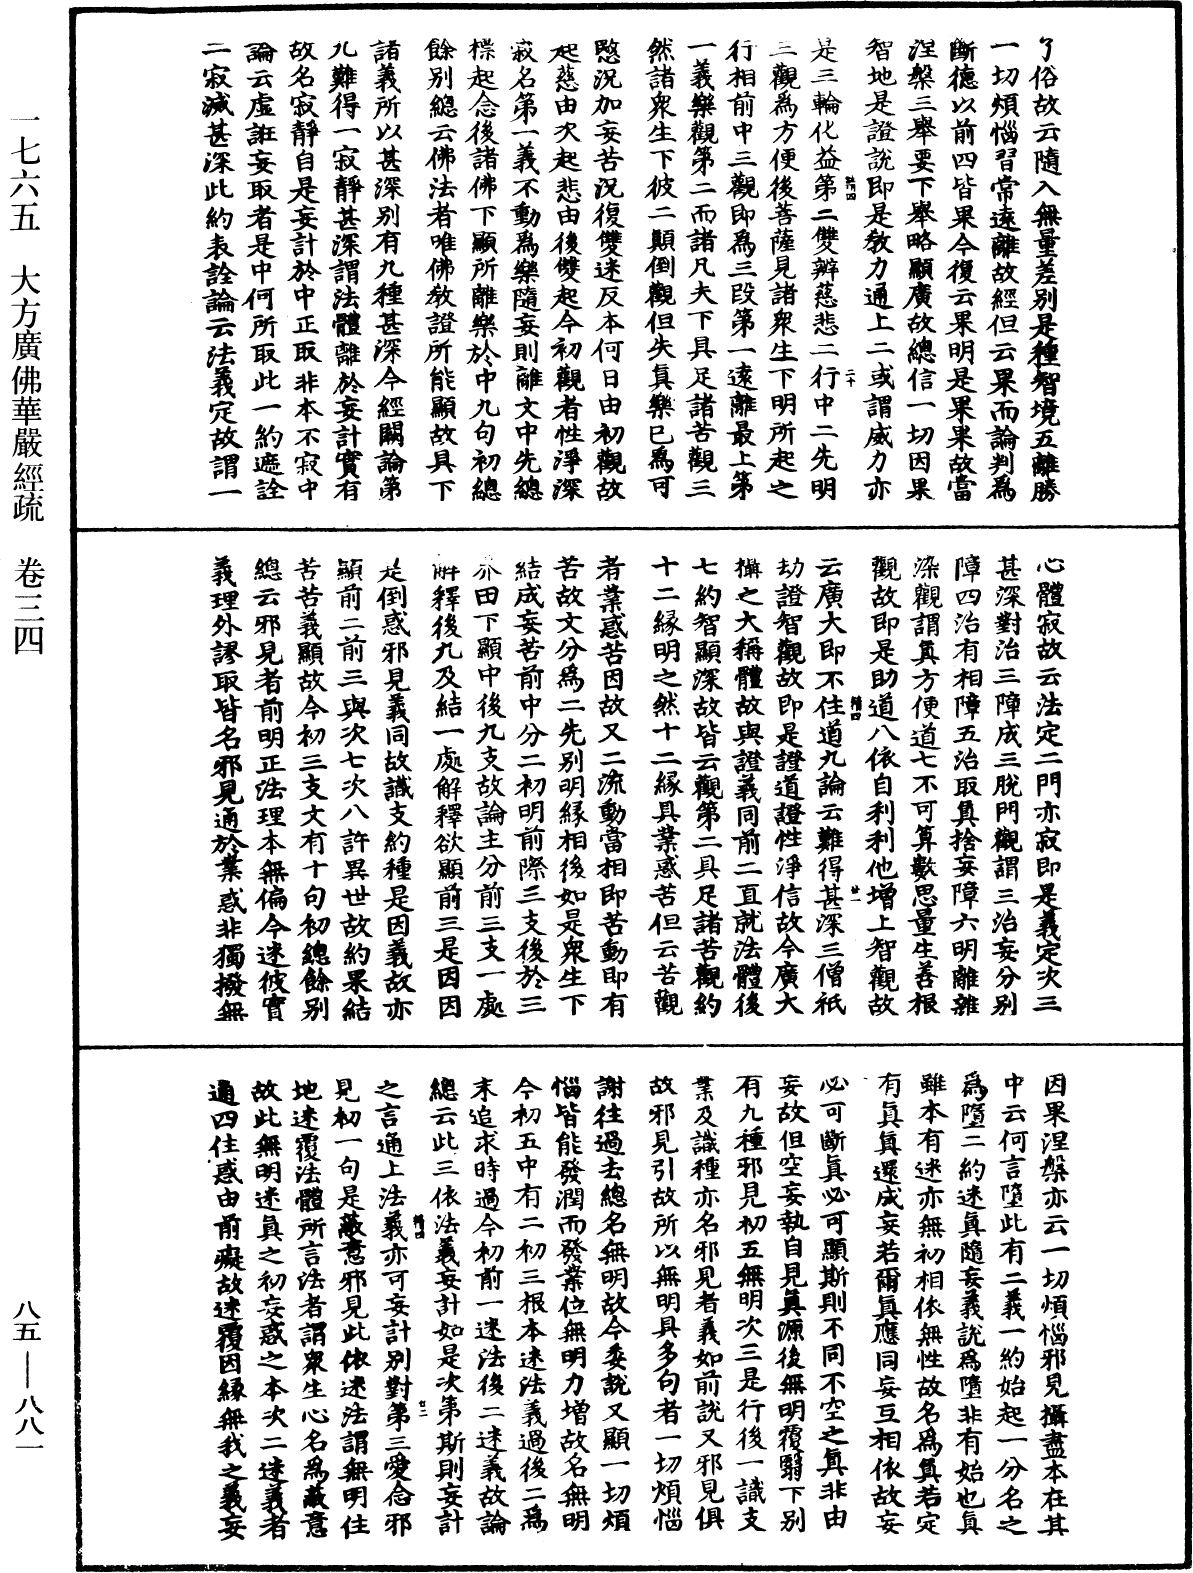 一七六五　大方廣佛華嚴經疏　卷三四
八五—八八一
了俗故云隨入無量差別是種智境五離勝
一切煩惱習常遠離故經但云果而論判為
斷德以前四皆果今復云果明是果果故當
涅槃三舉要下舉略顯廣故總信一切因果
智地是證說即是教力通上二或謂威力亦
是三輪化益第二雙辨慈悲二行中二先明
三觀為方便後菩薩見諸眾生下明所起之
行相前中三觀即為三段第一遠離最上第
一義樂觀第二而諸凡夫下具足諸苦觀三
然諸眾生下彼二顛倒觀但失真樂已為可
愍況加妄苦況復雙迷反本何日由初觀故
起慈由次起悲由後雙起今初觀者性淨深
寂名第一義不動為樂隨妄則離文中先總
標起念後諸佛下顯所離樂於中九句初總
餘別總云佛法者唯佛教證所能顯故具下
諸義所以甚深別有九種甚深今經闕論第
九難得一寂靜甚深謂法體離於妄計實有
故名寂靜自是妄計於中正取非本不寂中
論云虛誑妄取者是中何所取此一約遮詮
二寂滅甚深此約表詮論云法義定故謂一
心體寂故云法定二門亦寂即是義定次三
甚深對治三障成三脫門觀謂三治妄分別
障四治有相障五治取真捨妄障六明離雜
染觀謂真方便道七不可算數思量生善根
觀故即是助道八依自利利他增上智觀故
云廣大即不住道九論云難得甚深三僧祇
劫證智觀故即是證道證性淨信故今廣大
攝之大稱體故與證義同前二直就法體後
七約智顯深故皆云觀第二具足諸苦觀約
十二緣明之然十二緣具業惑苦但云苦觀
者業惑苦因故又二流動當相即苦動即有
苦故文分為二先別明緣相後如是眾生下
結成妄苦前中分二初明前際三支後於三
界田下顯中後九支故論主分前三支一處
解釋後九及結一處解釋欲顯前三是因因
是倒惑邪見義同故識支約種是因義故亦
顯前二前三與次七次八許異世故約果結
苦苦義顯故今初三支文有十句初總餘別
總云邪見者前明正法理本無偏今迷彼實
義理外謬取皆名邪見通於業惑非獨撥無
因果涅槃亦云一切煩惱邪見攝盡本在其
中云何言墮此有二義一約始起一分名之
為墮二約迷真隨妄義說為墮非有始也真
雖本有迷亦無初相依無性故名為真若定
有真真還成妄若爾真應同妄互相依故妄
必可斷真必可顯斯則不同不空之真非由
妄故但空妄執自見真源後無明覆翳下別
有九種邪見初五無明次三是行後一識支
業及識種亦名邪見者義如前說又邪見俱
故邪見引故所以無明具多句者一切煩惱
謝往過去總名無明故今委說又顯一切煩
惱皆能發潤而發業位無明力增故名無明
今初五中有二初三根本迷法義過後二為
末追求時過今初前一迷法後二迷義故論
總云此三依法義妄計如是次第斯則妄計
之言通上法義亦可妄計別對第三愛念邪
見初一句是蔽意邪見此依迷法謂無明住
地迷覆法體所言法者謂眾生心名為蔽意
故此無明迷真之初妄惑之本次二迷義者
通四住惑由前癡故迷覆因緣無我之義妄